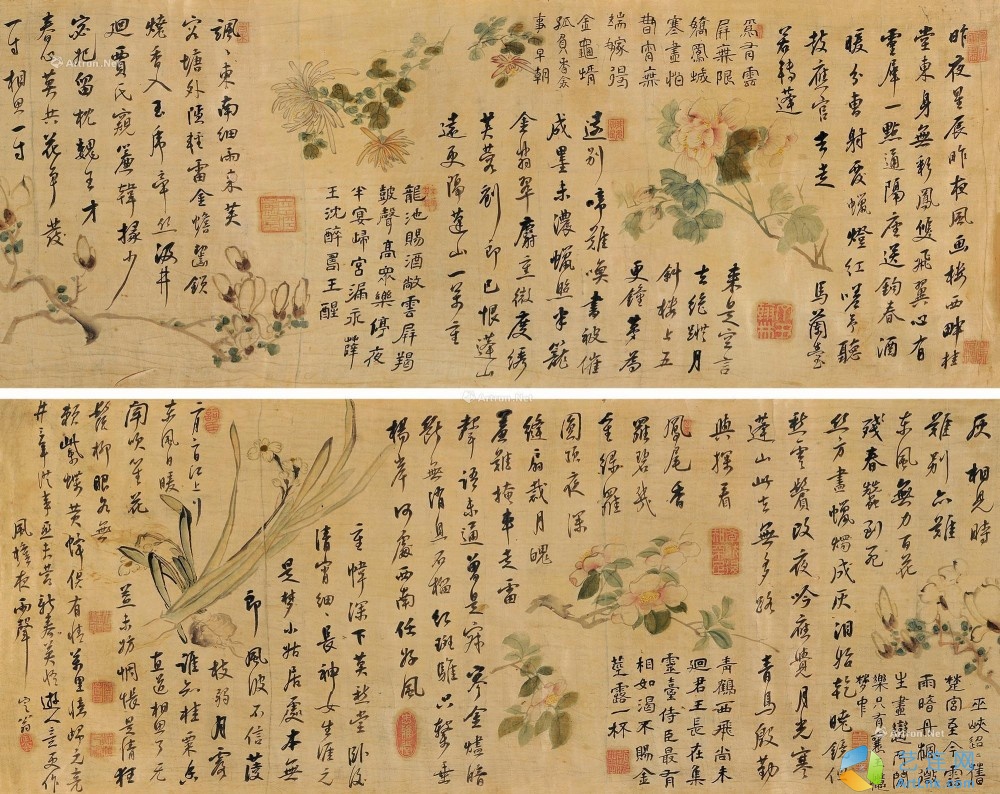 昨夜星辰昨夜風画楼西畔桂
堂東身無彩鳳雙飛翼心有
靈犀一點通隔座送鉤春酒
暖分曹射覆蠟燈紅嗟予聽
鼓應官去走馬蘭臺
若轉蓬
為有雲
屏無限
嬌鳳城
寒盡怕
春宵無
端嫁得
金龜婿
孤負香衾
事早朝
來是空言
去絕蹤月
斜樓上五
更鐘夢為
遠別啼難喚書被催
成墨未濃蠟照半籠
金翡翠麝熏微度繡
芙蓉劉郎已恨蓬山
遠更隔蓬山一萬重
龍池賜酒敞雲屏羯
鼓聲高眾樂停夜
半宴歸宮漏永薛
王沈醉壽王醒
颯々東南細雨來芙
容塘外輕雷金蟾齧鎖
燒香入玉虎牽絲汲井
迴賈氏窺簾韓掾少
宓妃留枕魏王才
春心莫共花爭發
一寸相思一寸
灰 相見時
難別亦難
東風無力百花
殘春蠶到死
絲方盡蠟燭成灰淚始乾曉鏡但
愁雲鬢改夜吟應覺月光寒
蓬山此去無多路 青鳥殷勤
與探看
巫峽迢々舊
楚宮至今雲
雨暗丹楓微
生盡戀人間
樂只有襄王憶
夢中
鳳尾香
羅碧幾
重綠羅
圓頂夜深
縫扇裁月魄
羞難掩車走雷
聲語未通曾是寂寥金燼暗
斷無消息石榴紅斑騅只繫垂
楊岸何處西南任好風
青鶴西飛尚未
迴君王長在集
靈臺侍臣最有
相如渴不賜金
莖露一杯
重幃深下莫愁堂臥後
清宵細々長神女生涯元
是夢小姑居處本無
郎 風波不信菱
枝弱月露
誰桂葉香
直道相思了無
益未妨惆悵是清狂
二月二日江上行
東風日暖
聞吹笙花
鬚柳眼各無
賴紫蝶黃蜂俱有情萬里憶歸元亮
井年從事亞夫營新春莫悟遊人意更作
風檐夜雨聲